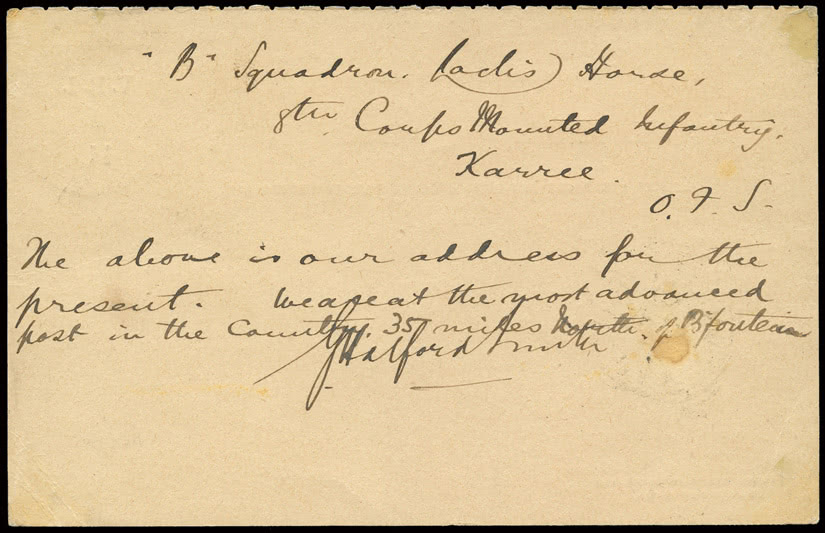 "B" Squadron. (Lochs) Horse,
8th Corps Mounted Infantry.
Karree.
O. F. S.
The above is our address for the
present. We are at the most advanced
post in the Country. 35 miles North of B'fontein
Halford Smith